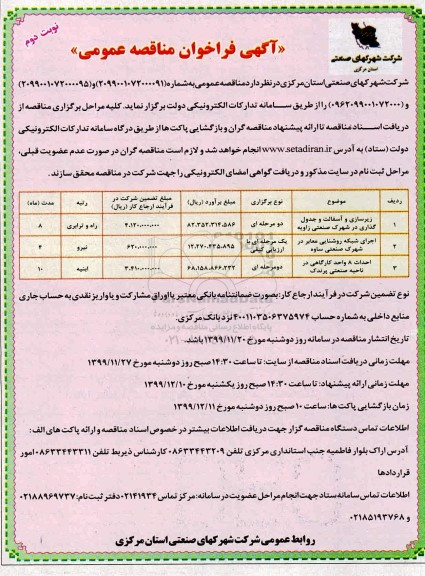 نوبت دوم
شرکت شهرکهای صنعتی
استان مرکزی
«آگهی فراخوان مناقصه عمومی»
شرکت شهرکهای صنعتی استان مرکزی در نظر دارد مناقصه عمومی به شماره (۲۰۹۹۰۰۱۰۷۲۰۰۰۰۹۱) و (۲۰۹۹۰۰۱۰۷۲۰۰۰۰۹۵)
و (۰۹۶۲۰۹۹۰۰۱۰۷۲۰۰۰) را از طریق سامانه تدارکات الکترونیکی دولت برگزار نماید. کلیه مراحل برگزاری مناقصه از
دریافت اسناد مناقصه تا ارائه پیشنهاد مناقصه گران و بازگشایی پاکت ها از طریق درگاه سامانه تدارکات الکترونیکی
دولت (ستاد) به آدرس www.setadiran.ir انجام خواهد شد و لازم است مناقصه گران در صورت عدم عضویت قبلی،
مراحل ثبت نام در سایت مذکور و دریافت گواهی امضای الکترونیکی را جهت شرکت در مناقصه محقق سازند.
ردیف موضوع نوع برگزاری مبلغ برآورد (ریال) مبلغ تضمین شرکت در فرآیند ارجاع کار (ریال) رتبه مدت (ماه)
۱ زیرسازی و آسفالت و جدول گذاری در شهرک صنعتی زاویه دو مرحله ای ۸۲.۳۵۲.۳۱۴.۵۸۶ ۴.۱۲۰.۰۰۰.۰۰۰ راه و ترابری ۸
۲ اجرای شبکه روشنایی معابر در شهرک صنعتی ساوه یک مرحله ای با ارزیابی کیفی ۱۲.۲۷۰.۲۳۵.۸۹۵ ۶۲۰.۰۰۰.۰۰۰ نیرو ۴
۳ احداث ۸ واحد کارگاهی در ناحیه صنعتی پرندک دو مرحله ای ۶۸.۱۵۸.۸۶۶.۲۳۲ ۳.۴۱۰.۰۰۰.۰۰۰ ابنیه ۱۰
نوع تضمین شرکت در فرآیند ارجاع کار: بصورت ضمانتنامه بانکی معتبر یا اوراق مشارکت و یا واریز نقدی به حساب جاری
منابع داخلی به شماره حساب ۴۰۰۱۱۰۳۵۰۶۳۷۵۹۷۴ نزد بانک مرکزی.
تاریخ انتشار مناقصه در سامانه روز دوشنبه مورخ ۱۳۹۹/۱۱/۲۰ باشند.
مهلت زمانی دریافت اسناد مناقصه از سایت: تا ساعت ۱۴:۳۰ صبح روز دوشنبه مورخ ۱۳۹۹/۱۱/۲۷
مهلت زمانی ارائه پیشنهاد: تا ساعت ۱۴:۳۰ صبح روز یکشنبه مورخ ۱۳۹۹/۱۲/۱۰
زمان بازگشایی پاکت ها: ساعت ۱۰ صبح روز دوشنبه مورخ ۱۳۹۹/۱۲/۱۱
اطلاعات تماس دستگاه مناقصه گزار جهت دریافت اطلاعات بیشتر در خصوص اسناد مناقصه و ارائه پاکت های الف:
آدرس اراک بلوار فاطمیه جنب استانداری مرکزی تلفن ۰۸۶۳۳۴۴۳۲۰۹ کارشناس ذیربط تلفن ۰۸۶۳۳۴۴۳۳۱۱ امور
قراردادها
اطلاعات تماس سامانه ستاد جهت انجام مراحل عضویت در سامانه: مرکز تماس ۰۲۱۴۱۹۳۴ دفتر ثبت نام: ۰۲۱۸۸۹۶۹۷۳۷
و ۰۲۱۸۵۱۹۳۷۶۸
روابط عمومی شرکت شهرکهای صنعتی استان مرکزی